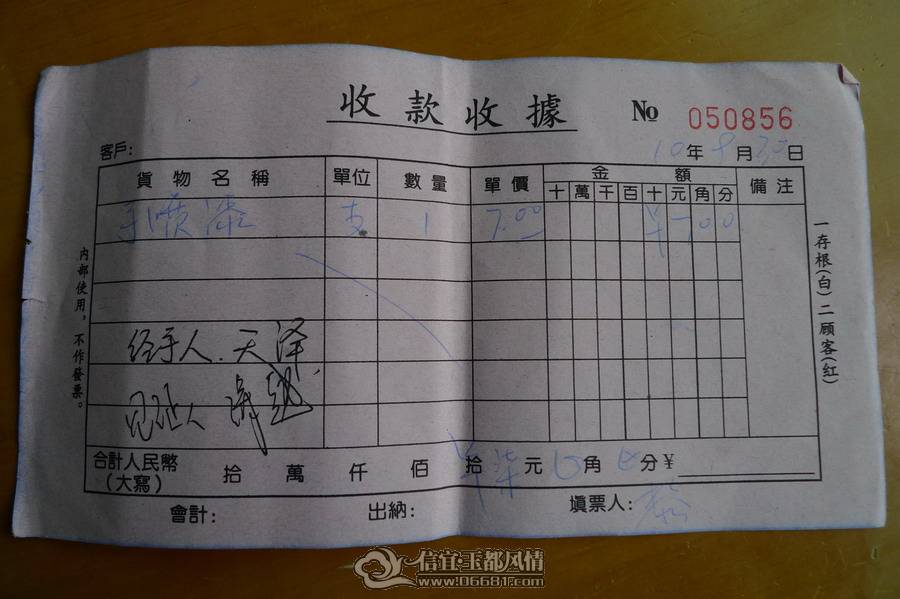 收款收據
№ 050856
客戶： 10年9月30日
貨物名稱 單位 數量 單價 金額 備注
十 萬 千 百 十 元 角 分
手喷漆 支 1 7.00 ¥ 7 0 0
经手人．天泽
见证人
合計人民幣（大寫） 拾 萬 仟 佰 拾 柒 元 0 角 0 分 ¥
會計： 出納： 填票人：
內部使用，不作發票。
一存根(白)二顧客(紅)
信宜·玉都风情
www.06681.com